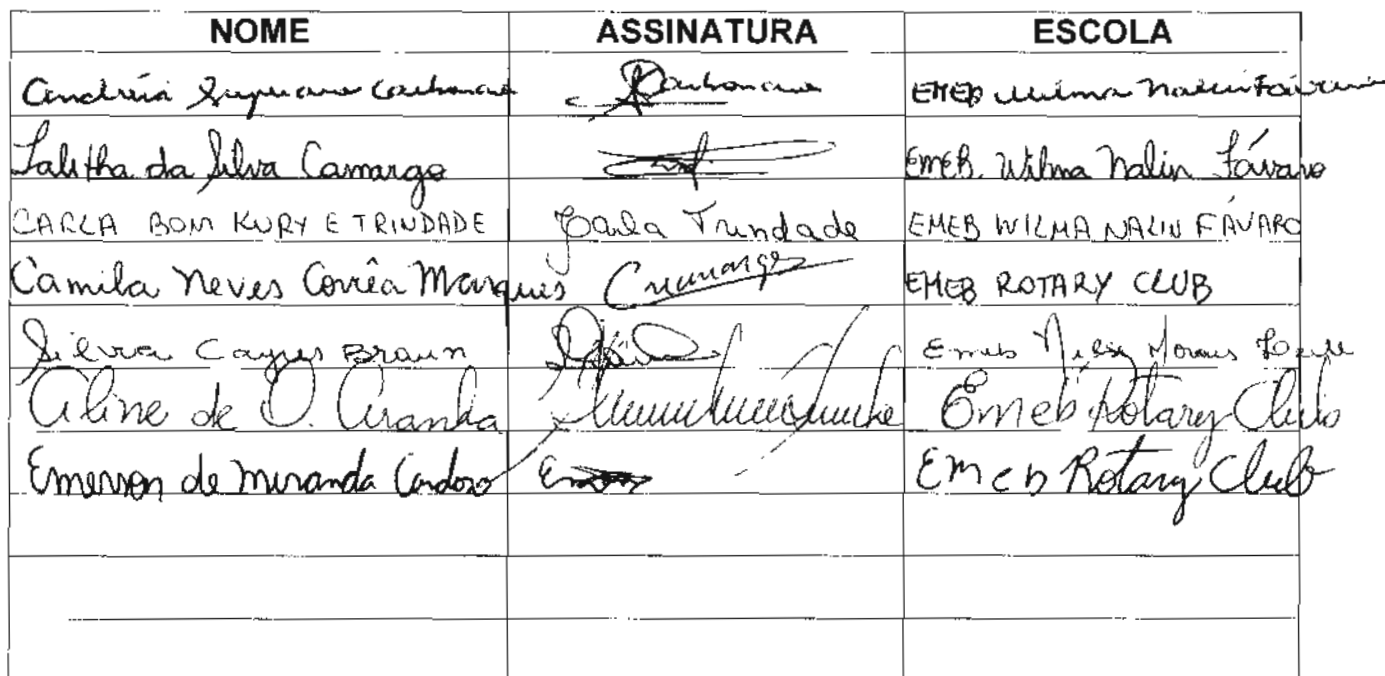 NOME ASSINATURA ESCOLA
Andréia EMEB Wilma Nalin Fávaro
Talitha da Silva Camargo EMEB. Wilma Nalin Fávaro
CARLA BOM KURY E TRINDADE Carla Trindade EMEB WILMA NALIN FÁVARO
Camila Neves Corrêa Marques EMEB ROTARY CLUB
Silvia Braun Emeb Moraes
Aline de O. Aranha Emeb Rotary Club
Emerson de Miranda Cardoso EMEB Rotary Club